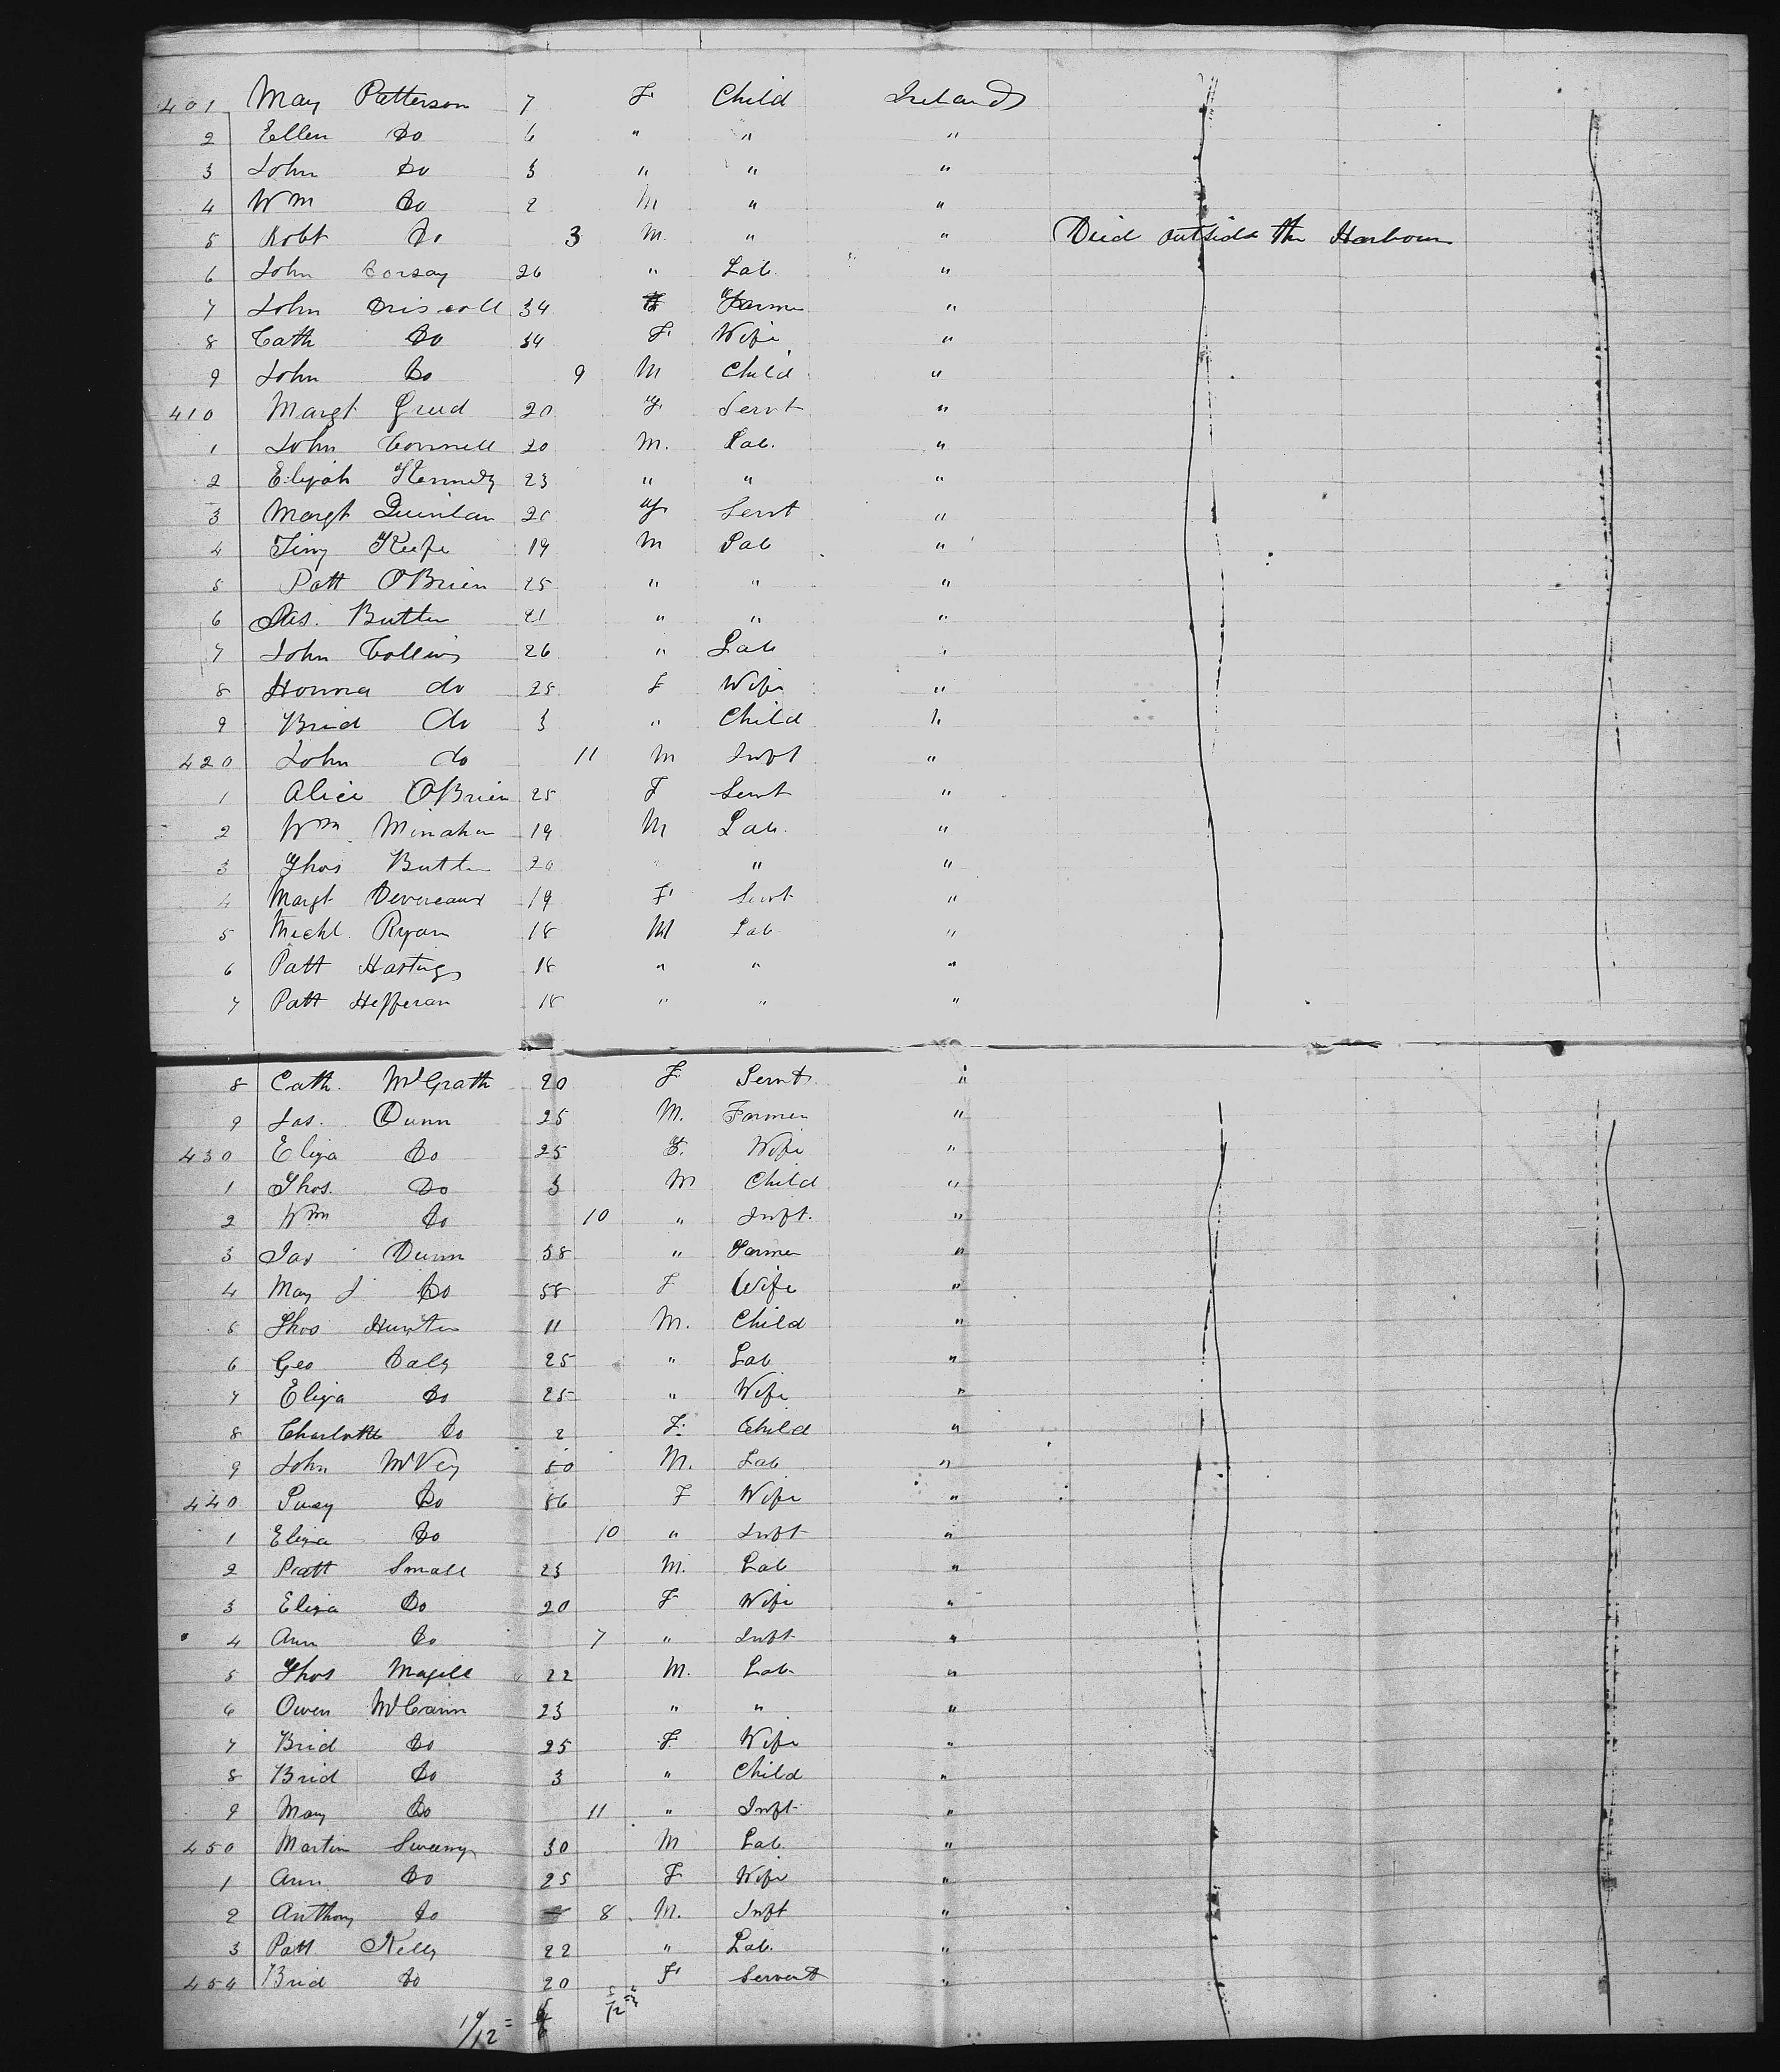 401 May Patterson 7 F Child Ireland
2 Ellen Do 6 " " "
3 John Do 3 " " "
4 Wm Do 2 M " "
5 Robt Do 3 M. " " Died outside the Harbour
6 John Dorsay 26 " Lab. "
7 John Driscoll 34 Farmer "
8 Cath Do 34 F. Wife "
9 John Do 9 M Child "
410 Margt Greed 20 F. Servt "
1 John Connell 20 M. Lab. "
2 Elijah Kennedy 23 " " "
3 Margt Quinlan 20 F. Servt "
4 Timy Keefe 19 M Lab "
5 Patt O'Brien 25 " " "
6 Jas. Butler 21 " " "
7 John Collins 26 " Lab "
8 Honora do 25 F Wife "
9 Brid Do 3 " Child "
420 John do 11 M Inft "
1 Alice O'Brien 25 F Servt "
2 Wm Minahan 19 M Lab. "
3 Thos Butler 20 " " "
4 Margt Devereaux 19 F Servt "
5 Michl. Ryan 18 M Lab "
6 Patt Hastings 18 " " "
7 Patt Hefferan 18 " " "
8 Cath. McGrath 20 F Servt "
9 Jas. Dunn 25 M. Farmer "
430 Eliza Do 25 F. Wife "
1 Thos. Do 3 M Child "
2 Wm Do 10 " Inft. "
3 Jas Dunn 58 " Farmer "
4 May J Do 58 F Wife "
5 Thos Hunter 11 M. Child "
6 Geo Daly 25 " Lab "
7 Eliza Do 25 " Wife "
8 Charlotte Do 2 F. Child "
9 John McVey 50 M. Lab "
440 Do 56 F Wife "
1 Eliza Do 10 " Inft "
2 Patt Small 23 M. Lab "
3 Eliza Do 20 F Wife "
4 Ann Do 7 " Inft "
5 Thos Magill 22 M. Lab "
6 Owen McCann 23 " " "
7 Brid Do 25 F Wife "
8 Brid Do 3 " Child "
9 May Do 11 " Inft "
450 Martin Sweeny 30 M Lab. "
1 Ann Do 25 F Wife "
2 Anthony Do 8 M. Inft "
3 Patt Kelly 22 " Lab. "
454 Brid Do 20 F Servant "